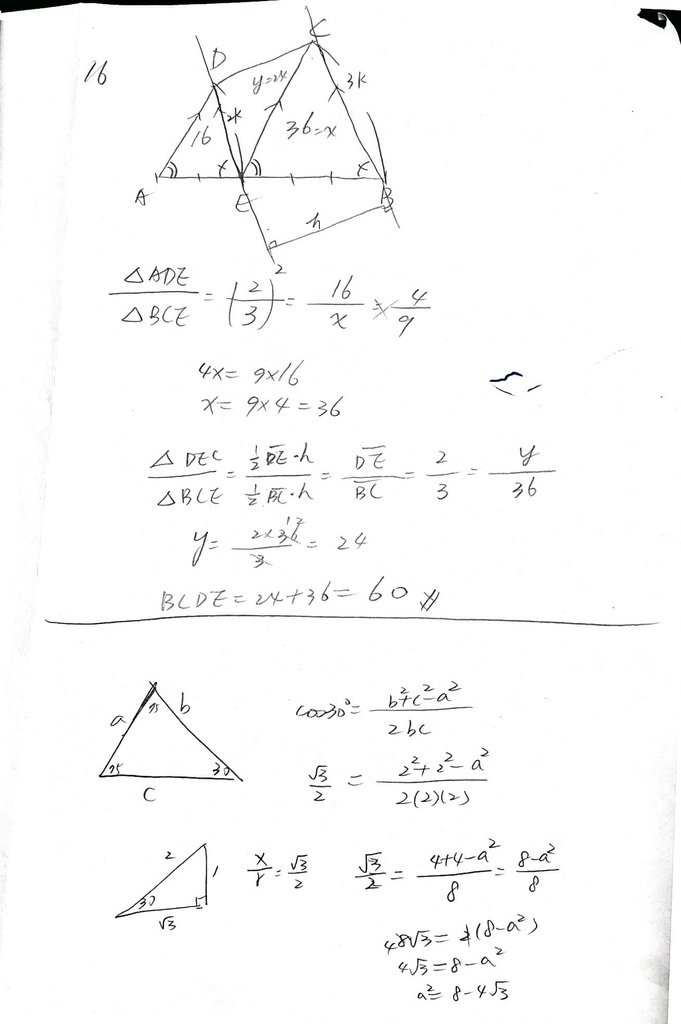 16
D
C
y=24
3k
2k
16
36=x
x
x
A
E
B
h
△ADE / △BCE = (2/3)² = 16/x = 4/9
4x = 9×16
x = 9×4 = 36
△DEC / △BCE = ½D̅E̅·h / ½B̅C̅·h = D̅E̅ / B̅C̅ = 2/3 = y/36
y = 2×36 / 3 = 24
12
BCDE = 24+36 = 60
a
75
b
75
30
c
cos30° = b²+c²-a² / 2bc
√3/2 = 2²+2²-a² / 2(2)(2)
2
1
30
√3
x/r = √3/2
√3/2 = 4+4-a² / 8 = 8-a² / 8
8√3 = 2(8-a²)
4√3 = 8-a²
a² = 8-4√3